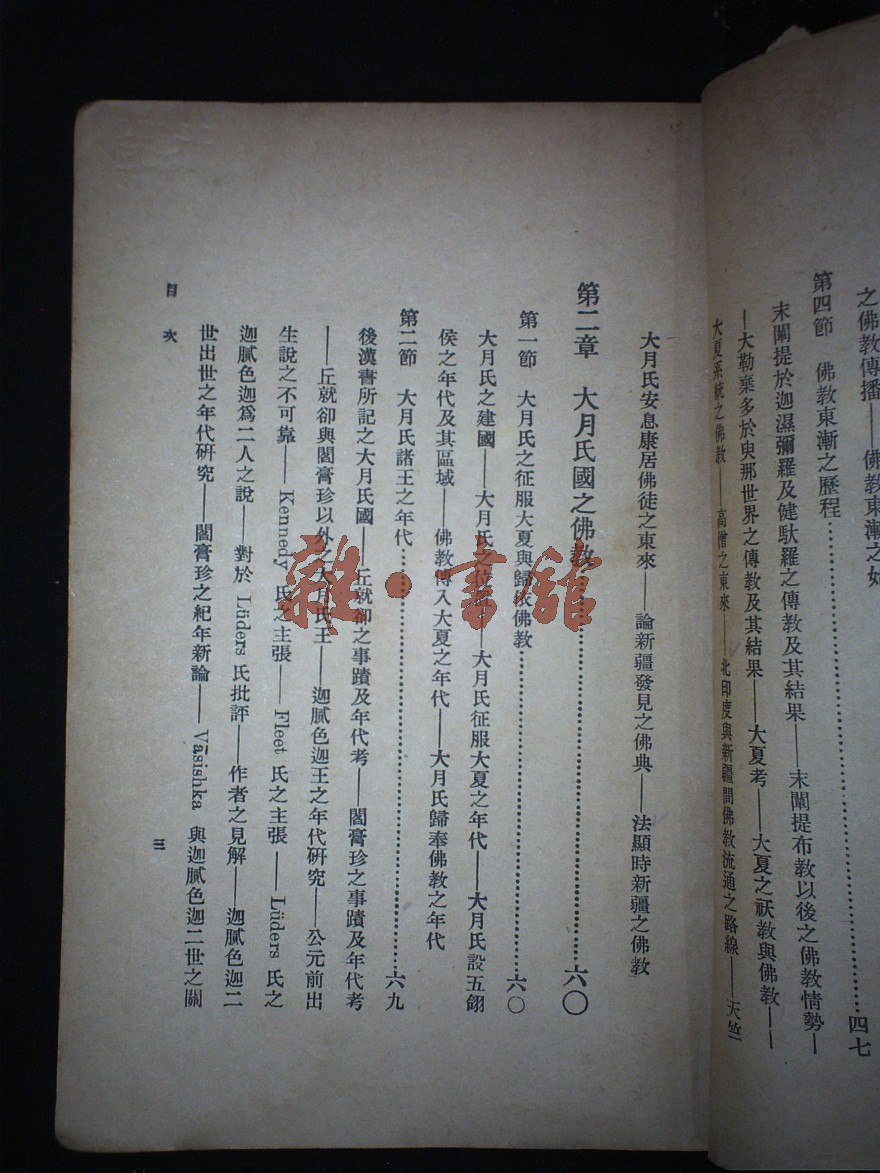 之佛教傳播——佛教東漸之始
第四節　佛教東漸之歷程…………四七
末闡提於迦濕彌羅及健馱羅之傳教及其結果——末闡提布教以後之佛教情勢—
—大勒棄多於臾那世界之傳教及其結果——大夏考——大夏之祆教與佛教——
大夏系統之佛教——高僧之東來——北印度與新疆間佛教流通之路線——天竺
大月氏安息康居佛徒之東來——論新疆發見之佛典——法顯時新疆之佛教
第二章　大月氏國之佛教…………六〇
第一節　大月氏之征服大夏與歸依佛教…………六〇
大月氏之建國——大月氏之位置——大月氏征服大夏之年代——大月氏設五翎
侯之年代及其區域——佛教傳入大夏之年代——大月氏歸奉佛教之年代
第二節　大月氏諸王之年代…………六九
後漢書所記之大月氏國——丘就卻之事蹟及年代考——閻膏珍之事蹟及年代考
——丘就卻與閻膏珍以外之大月氏王——迦膩色迦王之年代研究——公元前出
生說之不可靠——Kennedy 氏之主張——Fleet 氏之主張——Lüders 氏之
迦膩色迦爲二人之說——對於 Lüders 氏批評——作者之見解——迦膩色迦二
世出世之年代研究——閻膏珍之紀年新論——Vāsishka 與迦膩色迦二世之關
目次
三
雜·書館